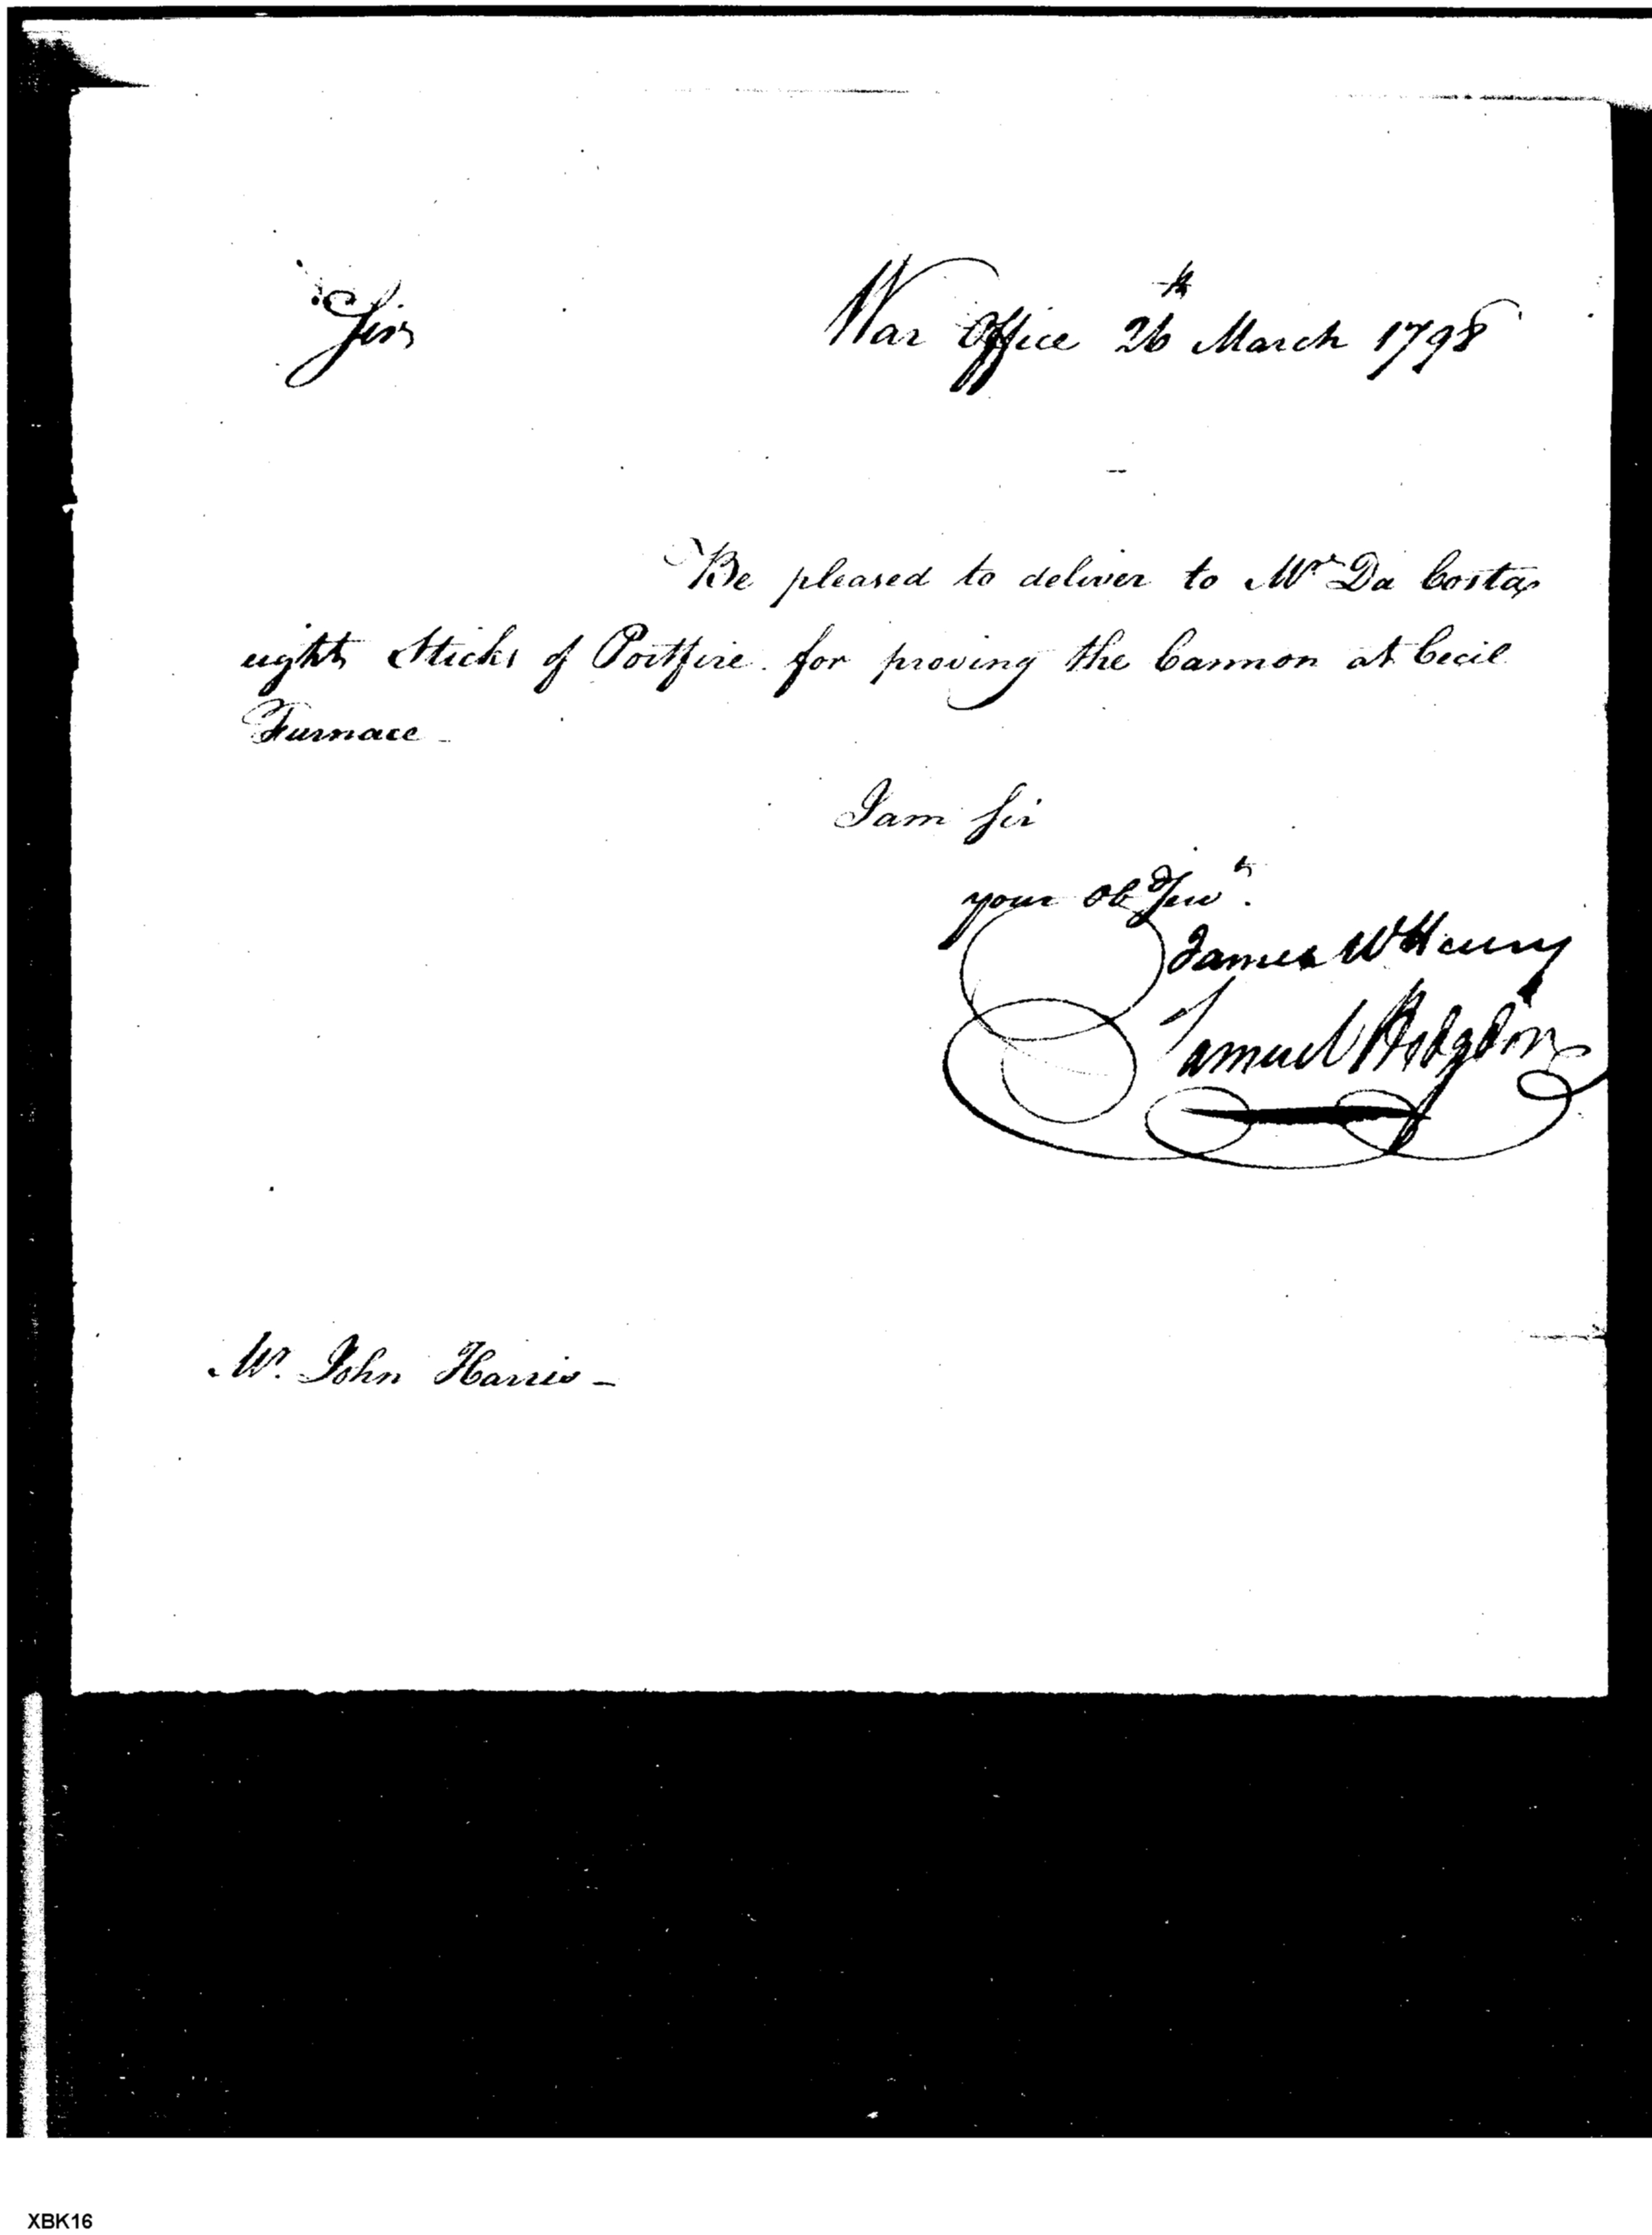 Sir,
War Office 26th March 1798
Be pleased to deliver to Mr Da Costa
eight Sticks of Portfire for proving the Cannon at Cecil
Furnace
I am Sir
your Obd Servt.
James McHenry
Samuel Hodgdon
Mr. John Harris -
XBK16